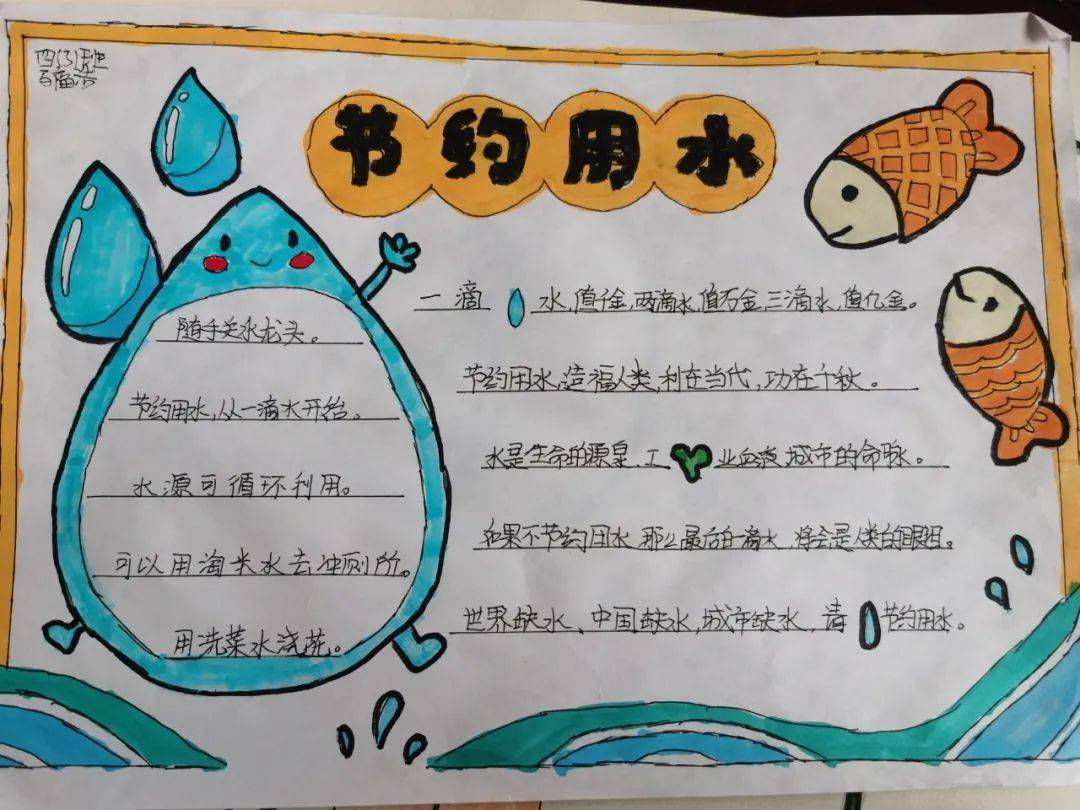 四(3)班
节约用水
随手关水龙头。
节约用水,从一滴水开始。
水源可循环利用。
可以用淘米水去冲厕所。
用洗菜水浇花。
一滴水,值千金,两滴水,值万金,三滴水,值亿金。
节约用水,造福人类,利在当代,功在千秋。
水是生命的源泉、工业血液、城市的命脉。
如果不节约用水,那么最后的一滴水,将会是人类的眼泪。
世界缺水、中国缺水,城市缺水,请节约用水。